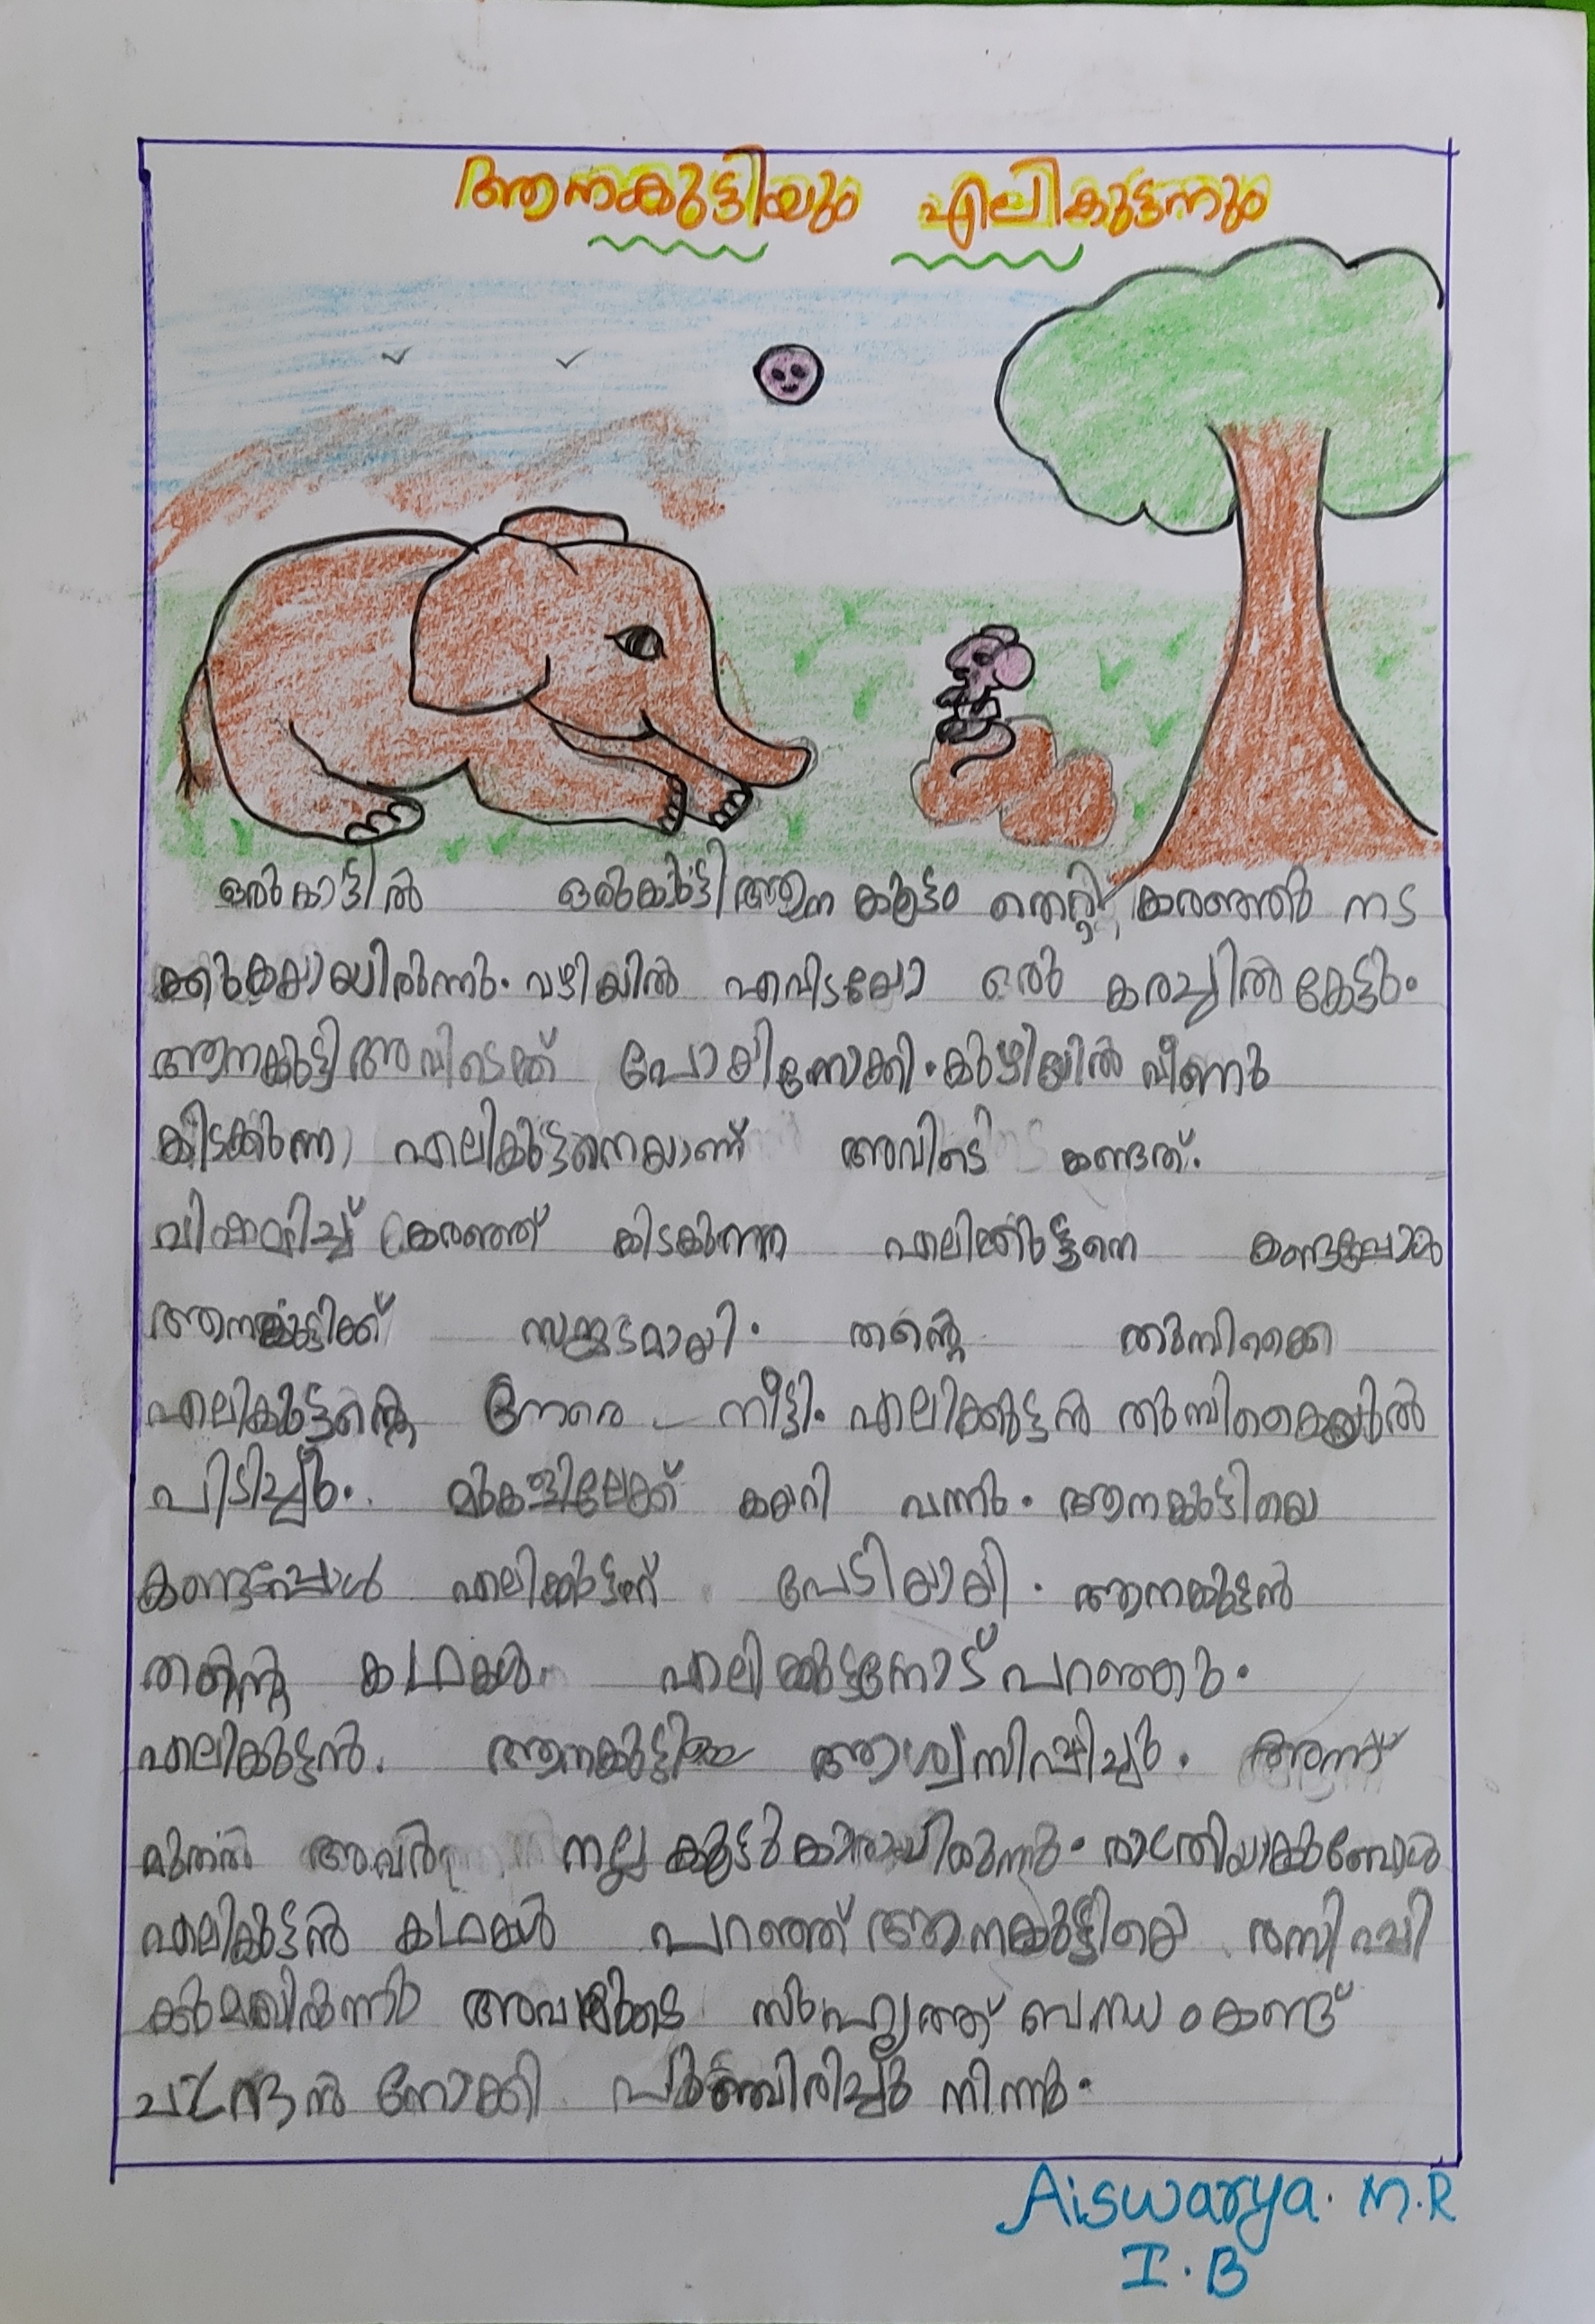 ആനകുട്ടിയും എലികുട്ടനും
ഒരു കാട്ടിൽ ഒരുകുട്ടിആന കൂട്ടം തെറ്റി കരഞ്ഞ് നട
ക്കുകയായിരുന്നു. വഴിയിൽ എവിടയോ ഒരു കരച്ചിൽ കേട്ടു.
ആനക്കുട്ടി അവിടെക്ക് പോയി നോക്കി. കുഴിയിൽ വീണു
കിടക്കുന്ന എലികുട്ടനെയാണ് അവിടെ കണ്ടത്.
വിഷമിച്ച് കരഞ്ഞ് കിടകുന്ന എലിക്കുട്ടനെ കണ്ടപ്പോൾ
ആനക്കുട്ടിക്ക് സങ്കടമായി. തന്റെ തുമ്പിക്കൈ
എലികുട്ടന്റെ നേരെ നീട്ടി. എലിക്കുട്ടൻ തുമ്പിക്കൈയിൽ
പിടിച്ചു. മുകളിലേക്ക് കയറി വന്നു. ആനക്കുട്ടിയെ
കണ്ടപ്പോൾ എലിക്കുട്ടന് പേടിയായി. ആനക്കുട്ടൻ
തന്റെ കഥകൾ എലിക്കുട്ടനോട് പറഞ്ഞു.
എലിക്കുട്ടൻ. ആനക്കുട്ടിയെ ആശ്വസിപ്പിച്ചു. അന്ന്
മുതൽ അവർ നല്ല കൂട്ടുകാരായിരുന്നു. രാത്രിയാകുമ്പോൾ
എലിക്കുട്ടൻ കഥകൾ പറഞ്ഞ് ആനക്കുട്ടിയെ രസിപ്പി
ക്കുമായിരുന്നു അവരുടെ സൗഹൃത്ത് ബന്ധം കണ്ട്
ചന്ദ്രൻ നോക്കി പുഞ്ചിരിച്ചു നിന്നു.
Aiswarya. M.R
I.B